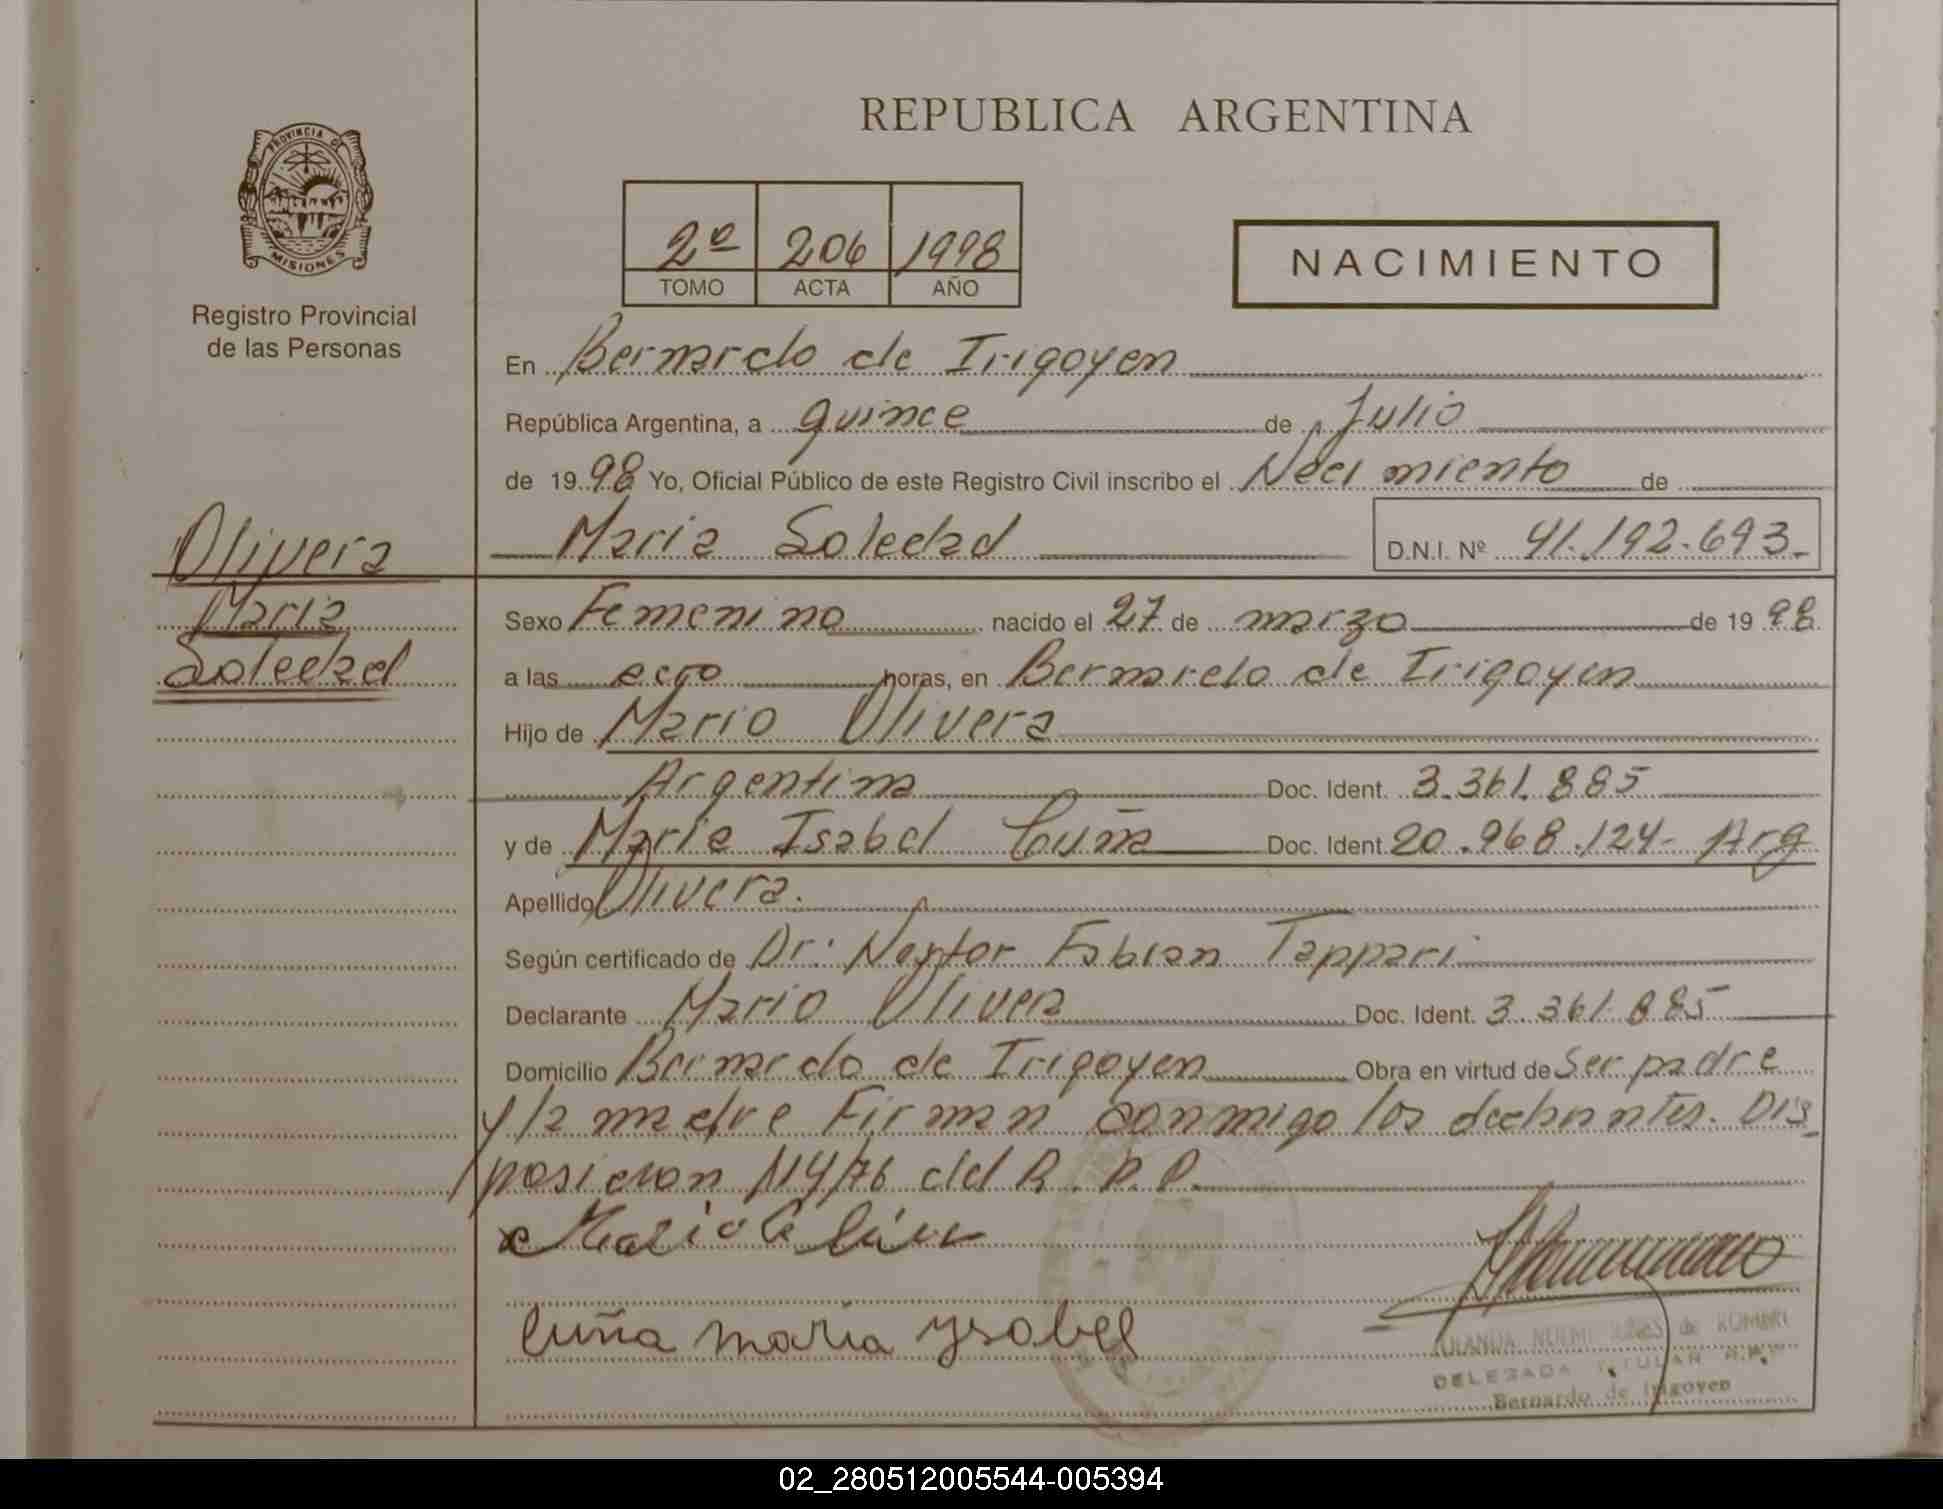 REPUBLICA ARGENTINA
PROVINCIA DE
MISIONES
Registro Provincial
de las Personas
2º 206 1998
TOMO ACTA AÑO
NACIMIENTO
En Bernardo de Irigoyen
República Argentina, a quince de Julio
de 1998 Yo, Oficial Público de este Registro Civil inscribo el Nacimiento de
Maria Soledad D.N.I. Nº 41.192.693.
Olivera
Maria
Soledad
Sexo Femenino nacido el 27 de marzo de 1998
a las ocho horas, en Bernardo de Irigoyen
Hijo de Mario Olivera
Argentina Doc. Ident. 3.361.885
y de Maria Isabel Cuña Doc. Ident. 20.968.124- Arg
Apellido Olivera.
Según certificado de Dr: Nestor Fabian Tappari
Declarante Mario Olivera Doc. Ident. 3.361.885
Domicilio Bernardo de Irigoyen Obra en virtud de Ser padre
y la madre Firman conmigo los declarantes. Dis
posicion 114/76 del R.P.P.
Cuña maria ysabel
DELEGADA TITULAR
Bernardo de Irigoyen
02_280512005544-005394